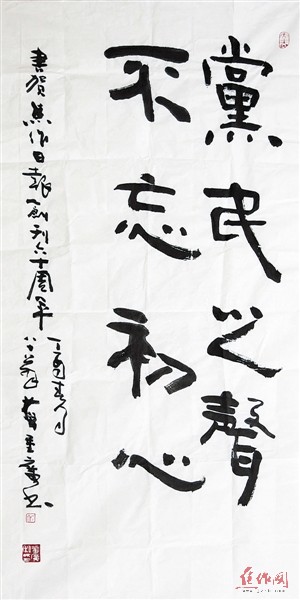 黨民之聲
不忘初心
書贺焦作日報創刊六十周年
丁酉春月
焦作网